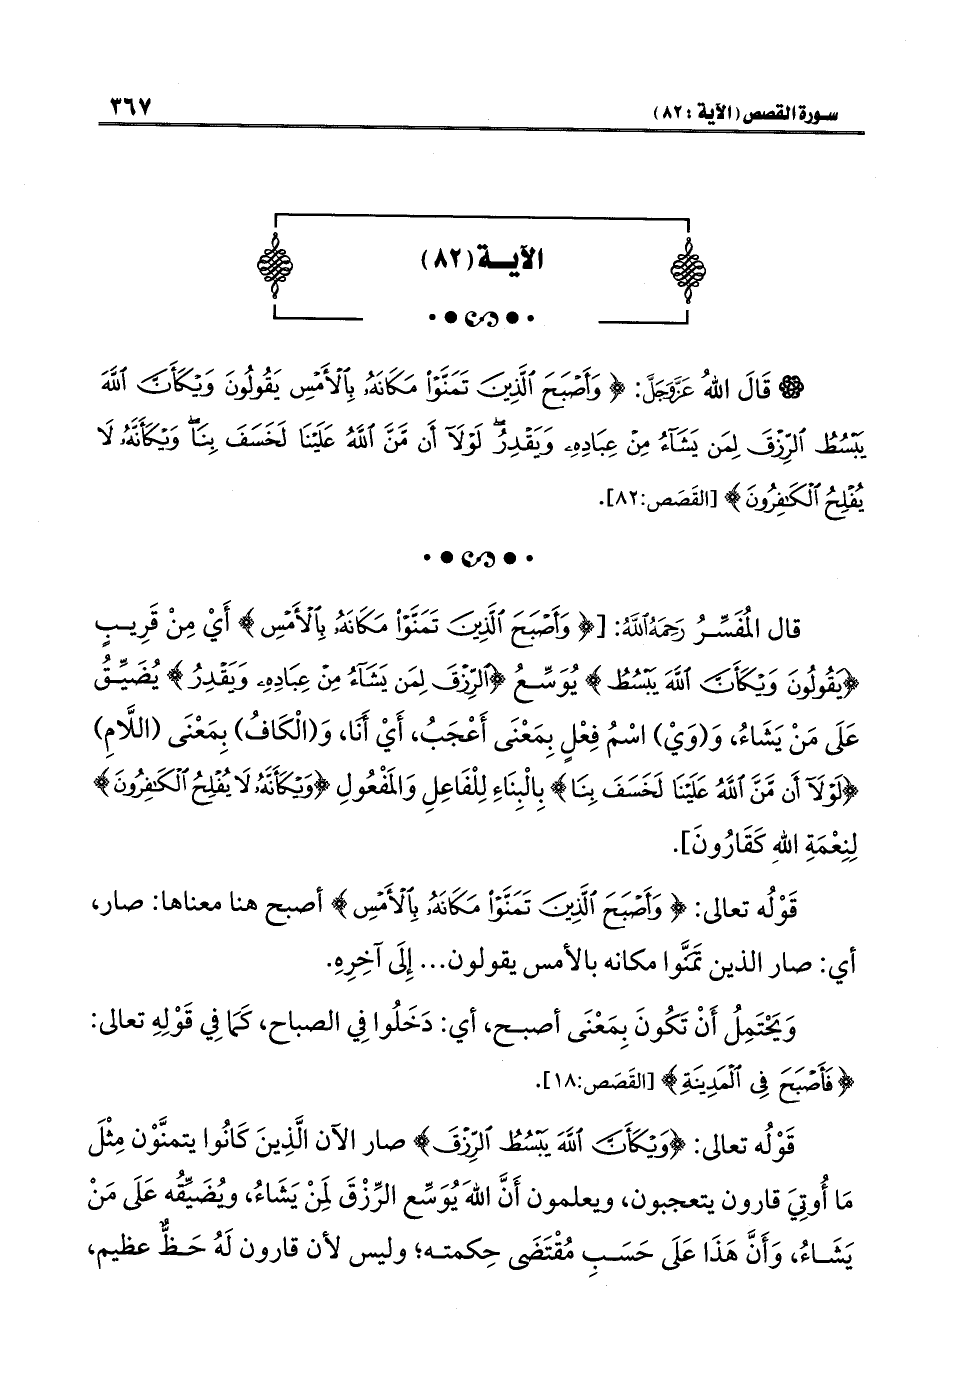 سورة القصص (الآية : ٨٢)
٣٦٧
الآيـة (٨٢)
قَالَ اللهُ عَزَّوَجَلَّ: ﴿ وَأَصْبَحَ ٱلَّذِينَ تَمَنَّوْا۟ مَكَانَهُۥ بِٱلْأَمْسِ يَقُولُونَ وَيْكَأَنَّ ٱللَّهَ
يَبْسُطُ ٱلرِّزْقَ لِمَن يَشَآءُ مِنْ عِبَادِهِۦ وَيَقْدِرُ ۖ لَوْلَآ أَن مَّنَّ ٱللَّهُ عَلَيْنَا لَخَسَفَ بِنَا ۖ وَيْكَأَنَّهُۥ لَا
يُفْلِحُ ٱلْكَـٰفِرُونَ ﴾ [القَصَص:٨٢].
قال المُفَسِّرُ رَحِمَهُ اللَّهُ: [﴿ وَأَصْبَحَ ٱلَّذِينَ تَمَنَّوْا۟ مَكَانَهُۥ بِٱلْأَمْسِ ﴾ أَيْ مِنْ قَرِيبٍ
﴿يَقُولُونَ وَيْكَأَنَّ ٱللَّهَ يَبْسُطُ ﴾ يُوَسِّعُ ﴿ٱلرِّزْقَ لِمَن يَشَآءُ مِنْ عِبَادِهِۦ وَيَقْدِرُ ﴾ يُضَيِّقُ
عَلَى مَنْ يَشَاءُ، وَ(وَيْ) اسْمُ فِعْلٍ بِمَعْنَى أَعْجَبُ، أَيْ أَنَا، وَ(الْكَافُ) بِمَعْنَى (اللَّامِ)
﴿لَوْلَآ أَن مَّنَّ ٱللَّهُ عَلَيْنَا لَخَسَفَ بِنَا﴾ بِالْبِنَاءِ لِلْفَاعِلِ وَالمَفْعُولِ ﴿وَيْكَأَنَّهُۥ لَا يُفْلِحُ ٱلْكَـٰفِرُونَ﴾
لِنِعْمَةِ اللهِ كَقَارُونَ].
قَوْلُه تعالى: ﴿ وَأَصْبَحَ ٱلَّذِينَ تَمَنَّوْا۟ مَكَانَهُۥ بِٱلْأَمْسِ ﴾ أصبح هنا معناها: صار،
أي: صار الذين تمَنَّوا مكانه بالأمس يقولون... إلَى آخِرِهِ.
وَيَحْتَمِلُ أَنْ تَكُونَ بِمَعْنَى أصبح، أي: دَخَلُوا فِي الصباح، كَمَا فِي قَوْلِهِ تعالى:
﴿ فَأَصْبَحَ فِى ٱلْمَدِينَةِ ﴾ [القَصَص:١٨].
قَوْلُه تعالى: ﴿وَيْكَأَنَّ ٱللَّهَ يَبْسُطُ ٱلرِّزْقَ ﴾ صار الآن الَّذِينَ كَانُوا يتمنَّوْن مِثْلَ
مَا أُوتِيَ قارون يتعجبون، ويعلمون أَنَّ اللهَ يُوَسِّع الرِّزْقَ لِمَنْ يَشَاءُ، ويُضَيِّقُه عَلَى مَنْ
يَشَاءُ، وَأَنَّ هَذَا عَلَى حَسَبِ مُقْتَضَى حِكمته؛ وليس لأن قارون لَهُ حَظٌّ عظيم،